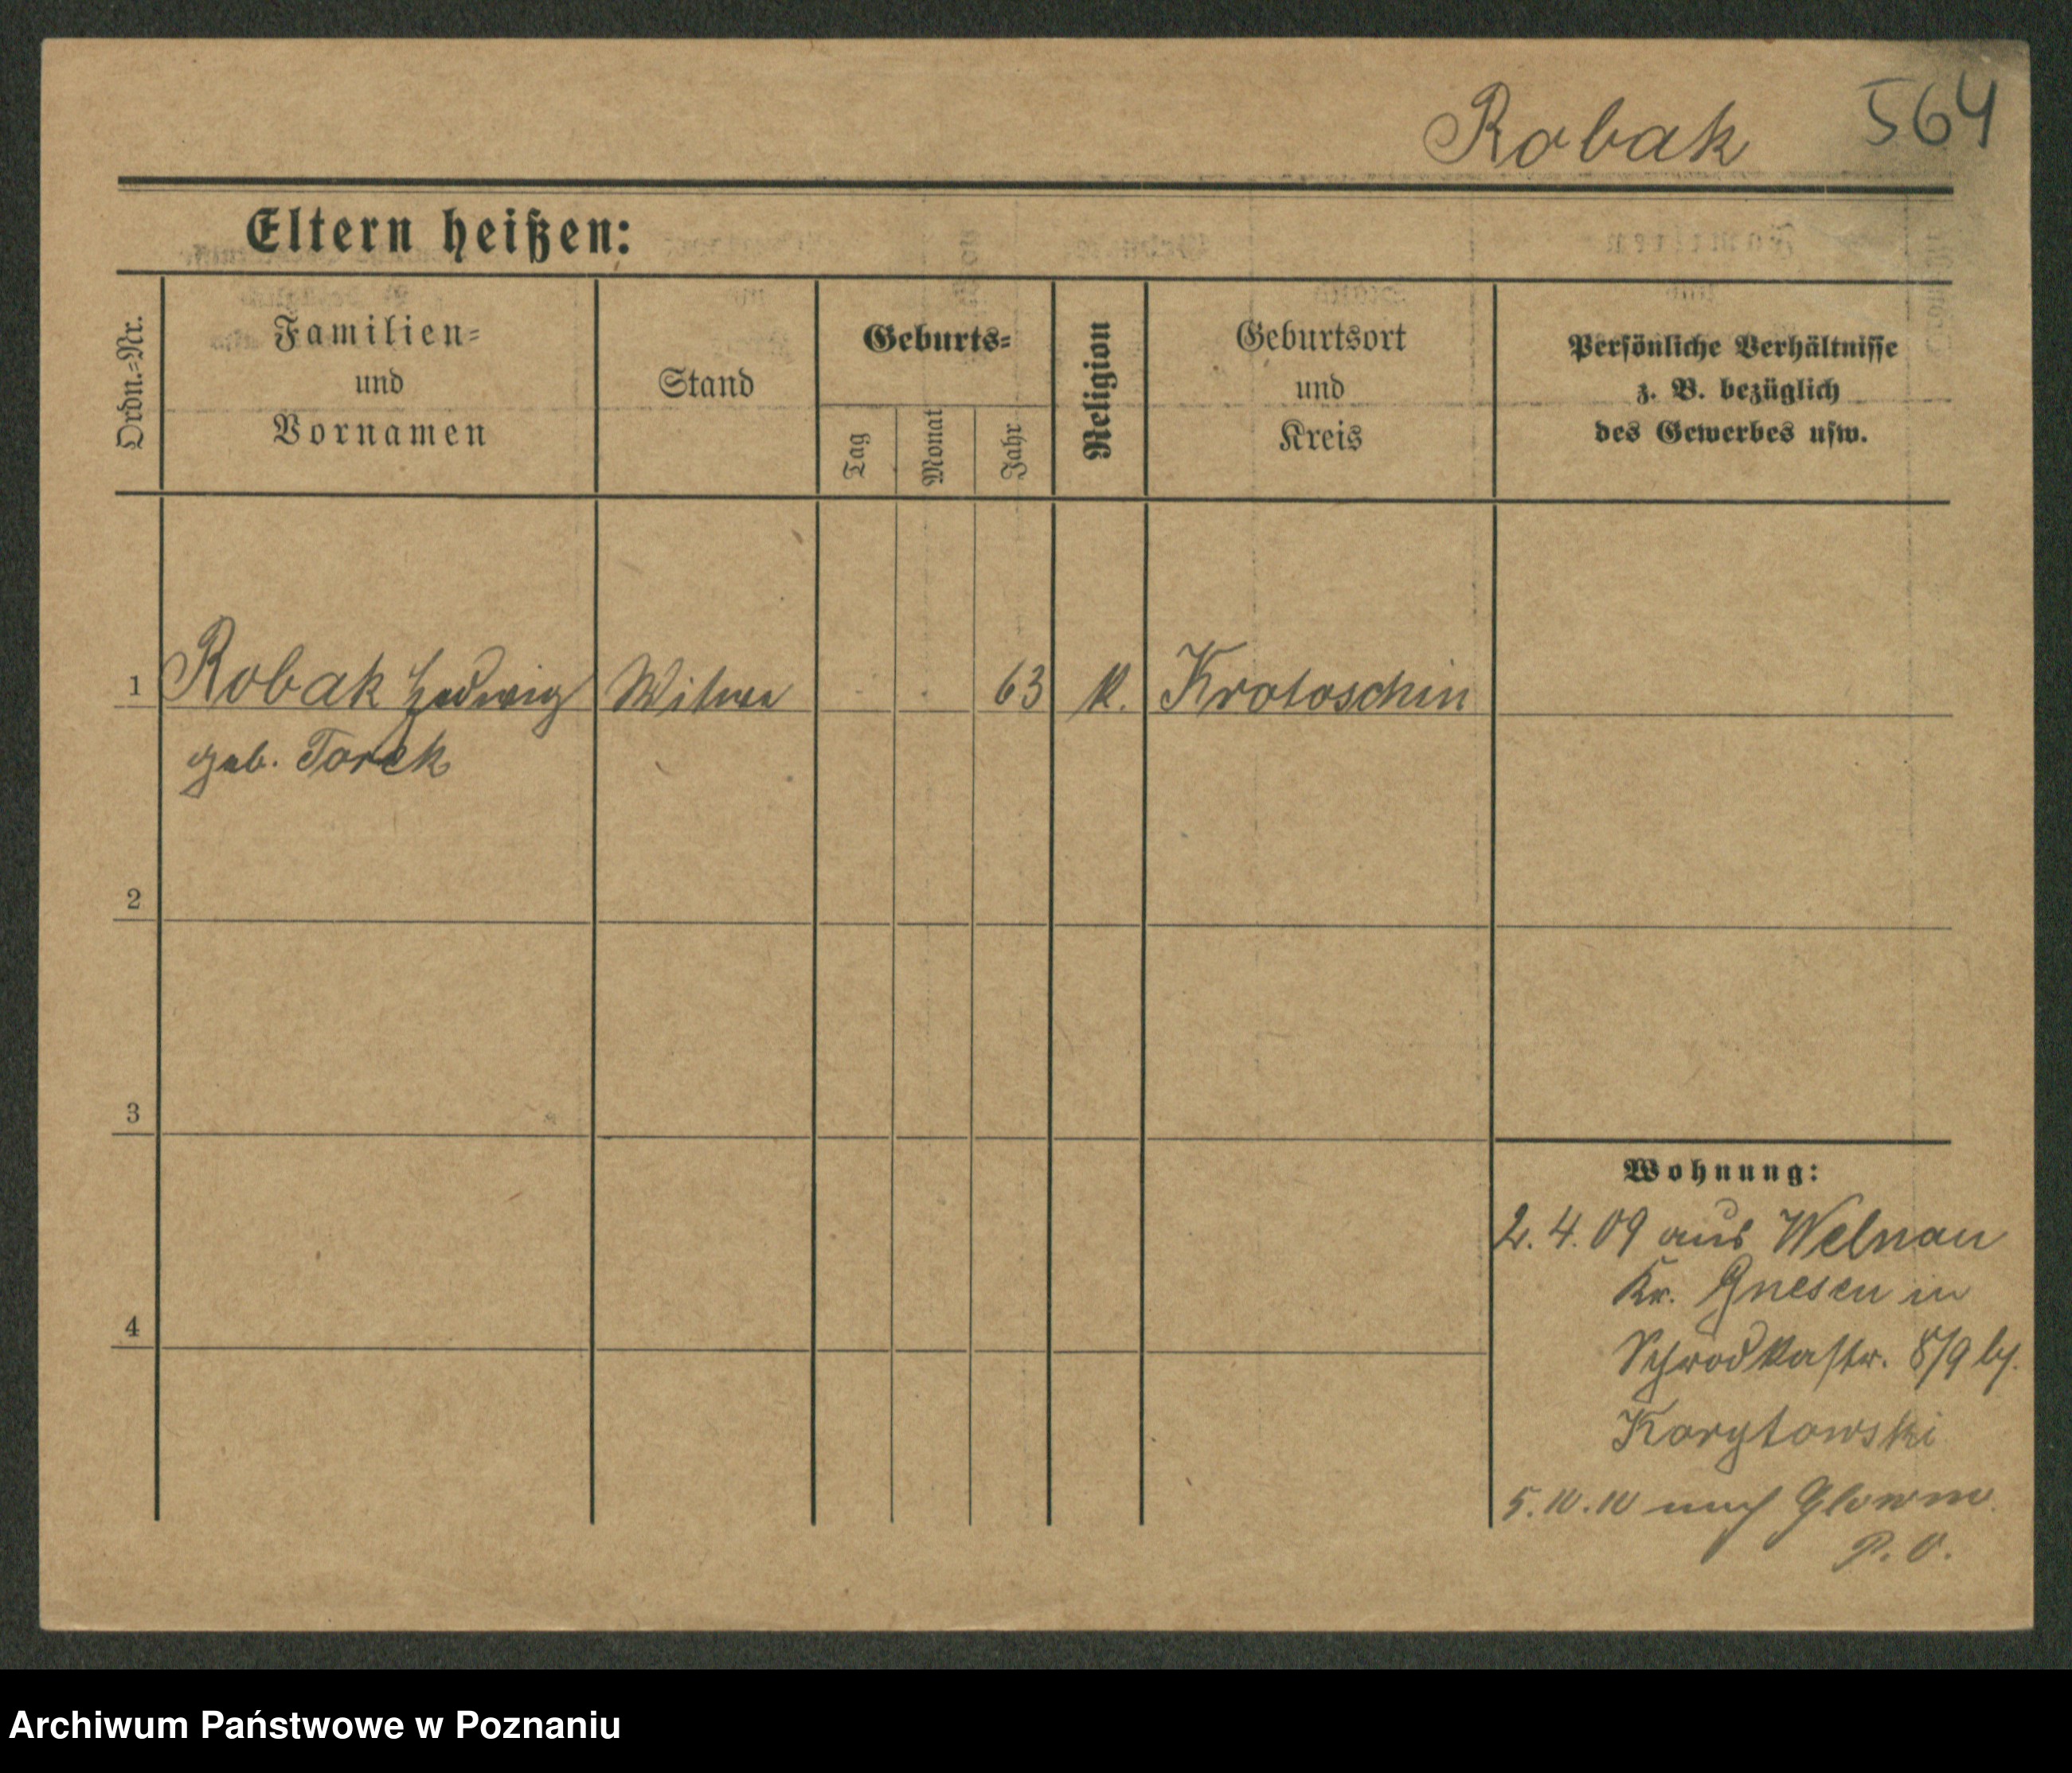 Robak 564
Eltern heißen:
Ordn.=Nr.
Familien=
und
Vornamen
Stand
Geburts=
Tag
Monat
Jahr
Religion
Geburtsort
und
Kreis
Persönliche Verhältnisse
z. B. bezüglich
des Gewerbes usw.
1 Robak Hedwig Witwe 63 k. Krotoschin
geb. Torek
2
3
4
Wohnung:
2. 4. 09 aus Welnau
Kr. Gnesen in
Schrodkastr. 8/9 b/.
Korytowski
5. 10. 10 nach Glowno
P. O.
Archiwum Państwowe w Poznaniu